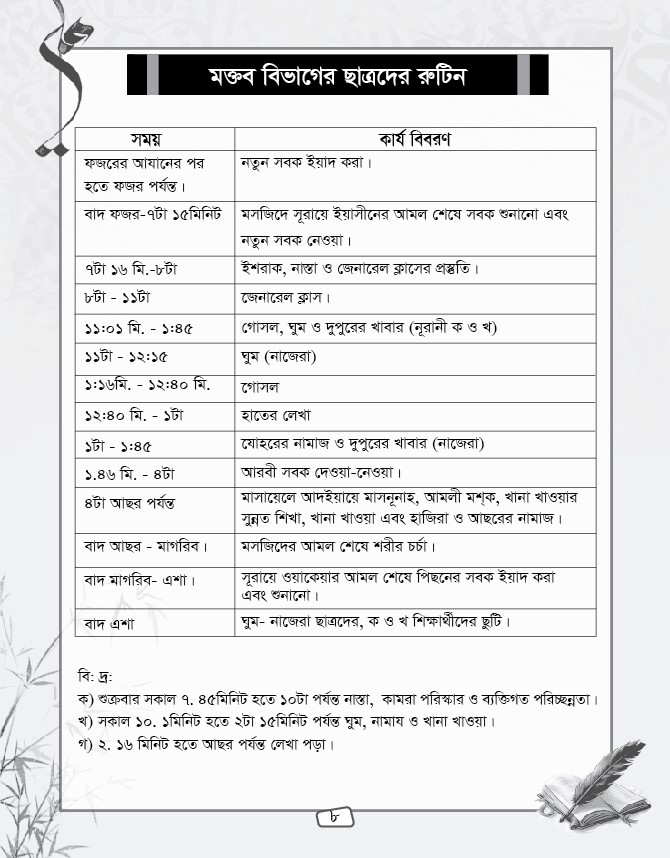 মক্তব বিভাগের ছাত্রদের রুটিন
সময় কার্য বিবরণ
ফজরের আযানের পর নতুন সবক ইয়াদ করা।
হতে ফজর পর্যন্ত।
বাদ ফজর-৭টা ১৫মিনিট মসজিদে সূরায়ে ইয়াসীনের আমল শেষে সবক শুনানো এবং
নতুন সবক নেওয়া।
৭টা ১৬ মি.-৮টা ইশরাক, নাস্তা ও জেনারেল ক্লাসের প্রস্তুতি।
৮টা - ১১টা জেনারেল ক্লাস।
১১:০১ মি. - ১:৪৫ গোসল, ঘুম ও দুপুরের খাবার (নূরানী ক ও খ)
১১টা - ১২:১৫ ঘুম (নাজেরা)
১:১৬মি. - ১২:৪০ মি. গোসল
১২:৪০ মি. - ১টা হাতের লেখা
১টা - ১:৪৫ যোহরের নামাজ ও দুপুরের খাবার (নাজেরা)
১.৪৬ মি. - ৪টা আরবী সবক দেওয়া-নেওয়া।
৪টা আছর পর্যন্ত মাসায়েলে আদইয়ায়ে মাসনূনাহ, আমলী মশ্‌ক, খানা খাওয়ার
সুন্নত শিখা, খানা খাওয়া এবং হাজিরা ও আছরের নামাজ।
বাদ আছর - মাগরিব। মসজিদের আমল শেষে শরীর চর্চা।
বাদ মাগরিব- এশা। সূরায়ে ওয়াকেয়ার আমল শেষে পিছনের সবক ইয়াদ করা
এবং শুনানো।
বাদ এশা ঘুম- নাজেরা ছাত্রদের, ক ও খ শিক্ষার্থীদের ছুটি।
বি: দ্র:
ক) শুক্রবার সকাল ৭. ৪৫মিনিট হতে ১০টা পর্যন্ত নাস্তা, কামরা পরিস্কার ও ব্যক্তিগত পরিচ্ছন্নতা।
খ) সকাল ১০. ১মিনিট হতে ২টা ১৫মিনিট পর্যন্ত ঘুম, নামায ও খানা খাওয়া।
গ) ২. ১৬ মিনিট হতে আছর পর্যন্ত লেখা পড়া।
৮